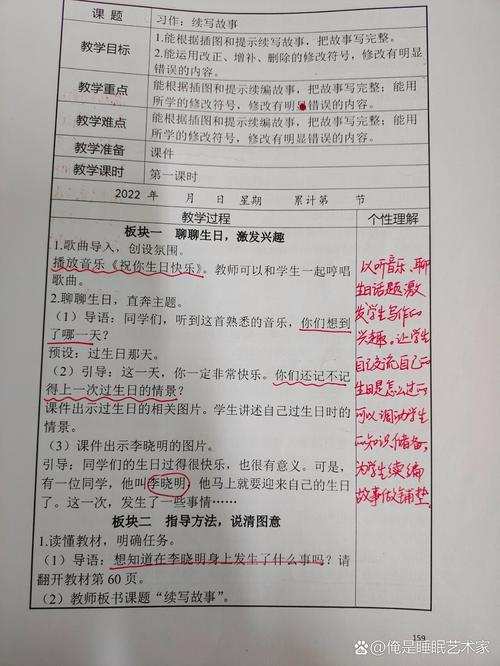 课 题 习作：续写故事
教学目标 1.能根据插图和提示续写故事，把故事写完整。
2.能运用改正、增补、删除的修改符号，修改有明显
错误的内容。
教学重点 能根据插图和提示续编故事，把故事写完整；能用
所学的修改符号，修改有明显错误的内容。
教学难点 能根据插图和提示续编故事，把故事写完整；能用
所学的修改符号，修改有明显错误的内容。
教学准备 课件
教学课时 第一课时
2022 年 月 日 星期 累计第 节
教学过程 个性理解
板块一 聊聊生日，激发兴趣
1.歌曲导入，创设氛围。
播放音乐《祝你生日快乐》。教师可以和学生一起哼唱
歌曲。
2.聊聊生日，直奔主题。
（1）导语：同学们，听到这首熟悉的音乐，你们想到
了哪一天？
预设：过生日那天。
（2）引导：这一天，你一定非常快乐。你们还记不记
得上一次过生日的情景？
课件出示过生日的相关图片。学生讲述自己过生日时的
情景。
（3）课件出示李晓明的图片。
引导：同学们的生日过得很快乐，也很有意义。可是，
有一位同学，他叫李晓明，他马上就要迎来自己的生日
了。这一次，发生了一些事情……
板块二 指导方法，说清图意
1.读懂教材，明确任务。
（1）导语：想知道在李晓明身上发生了什么事吗？请
翻开教材第 60 页。
（2）教师板书课题“续写故事”。
以听音乐、聊
生日话题激
发学生写作的
兴趣。让学生
自己交流自己的
生日是怎么过的
可以调动学生
的知识储备，
为学生续编
故事做铺垫。
159
@俺是睡眠艺术家